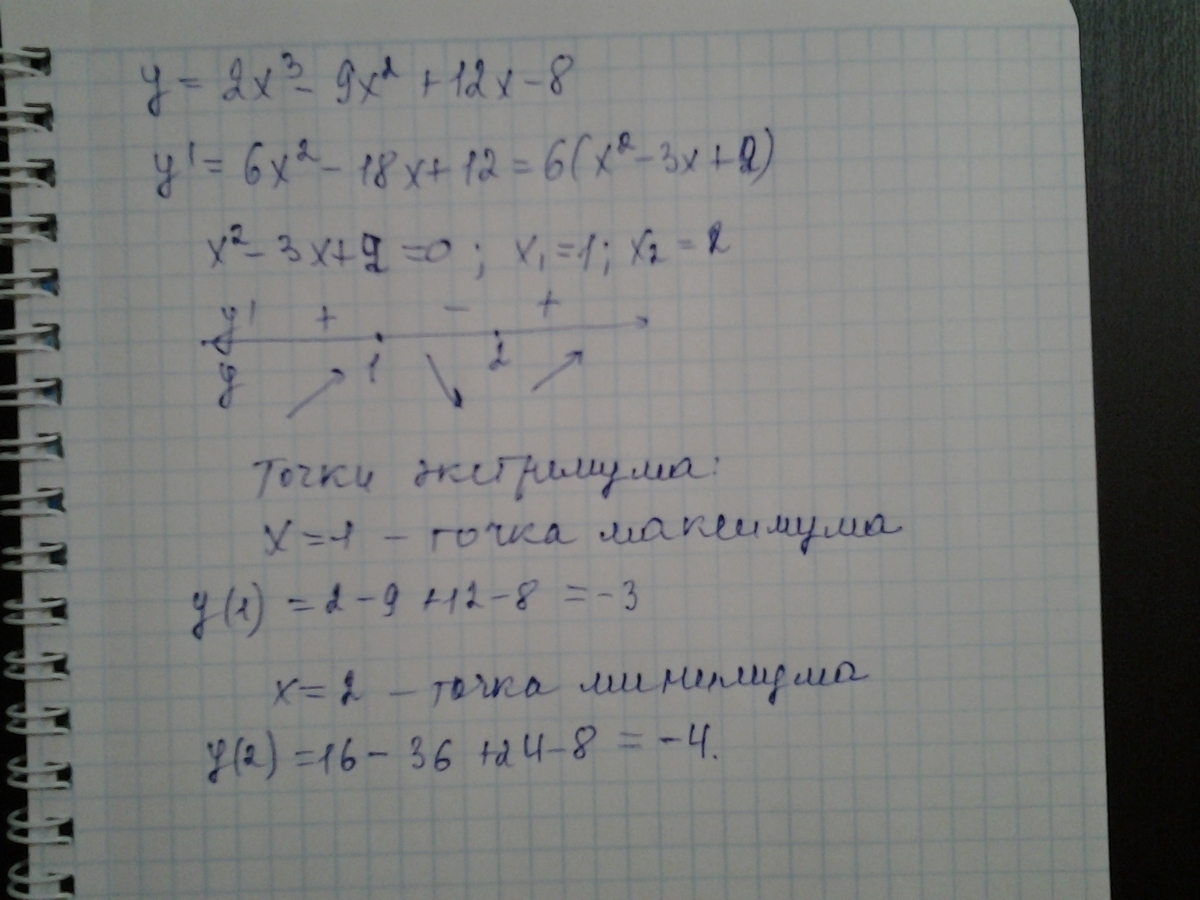 y = 2x³ - 9x² + 12x - 8
y' = 6x² - 18x + 12 = 6(x² - 3x + 2)
x² - 3x + 2 = 0 ; x₁ = 1; x₂ = 2
y' + - +
1 2
y
Точки экстримума:
x = 1 - точка максимума
y(1) = 2 - 9 + 12 - 8 = -3
x = 2 - точка минимума
y(2) = 16 - 36 + 24 - 8 = -4.